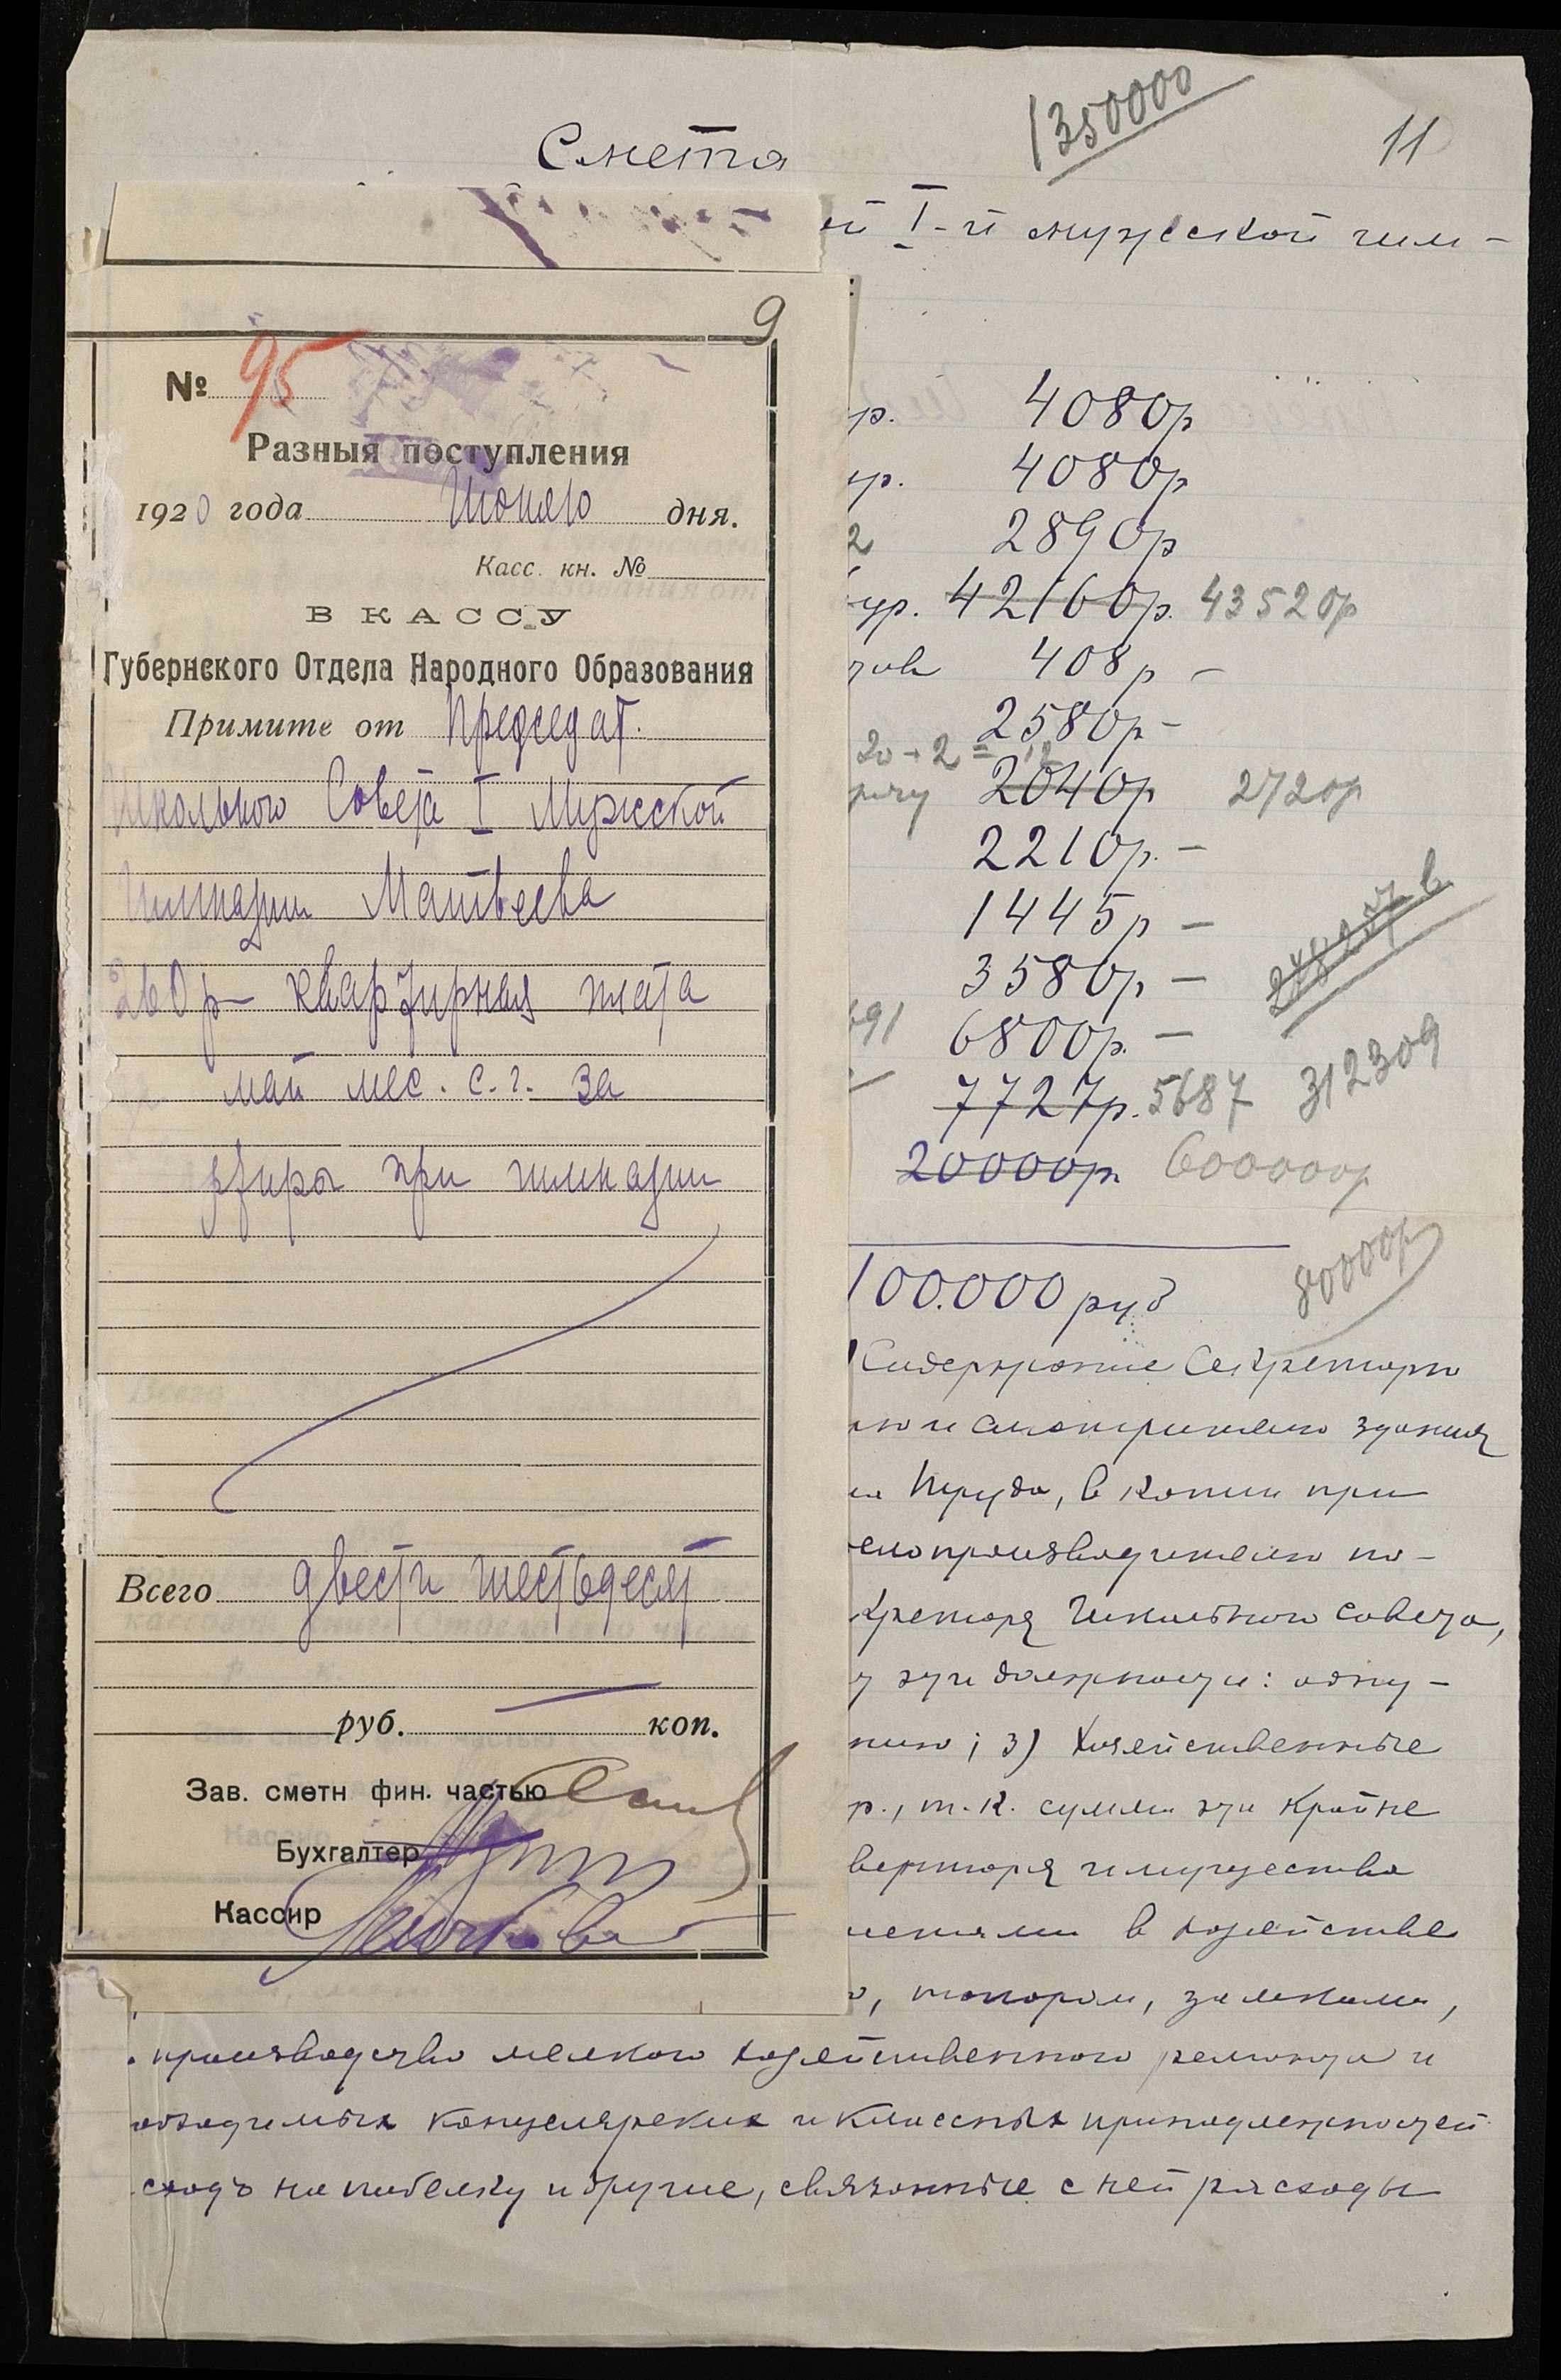 1350000
11
Смета
ей I-й мужской гим-
9
№ 95
Разныя поступления
1920 года Июня 10 дня.
Касс. кн. №
В КАССУ
Губернского Отдела Народного Образования
Примите от Председат.
Школьного Совета I Мужской
Гимназии Матвеева
260 р — квартирная плата
май мес. с. г. за
при гимназии
Всего двести шестьдесят
руб. — коп.
Зав. сметн фин. частью
Бухгалтер
Кассир
р. 4080р
ур. 4080р
2 2890р
ур. 42160р. 43520р
408р —
2580р —
20 + 2 =
2040р 2720р
2210р. —
1445р —
3580р —
6800р. —
312309
7727р. 5687
20000р 600000р
80000р
100.000 руб
Содержание Секретарю
и смотрителю здания
Труда, в копии при
делопроизводителю по-
кретаря Школьного Совета,
эти должности: одну —
нию; 3) Хозяйственные
р., т. к. суммы эти крайне
имущества
в хозяйстве
, топорам, замками,
производство мелкого хозяйственного ремонта и
обходимых канцелярских и классных принадлежностей
сход на побелку и другие, связанные с ней расходы